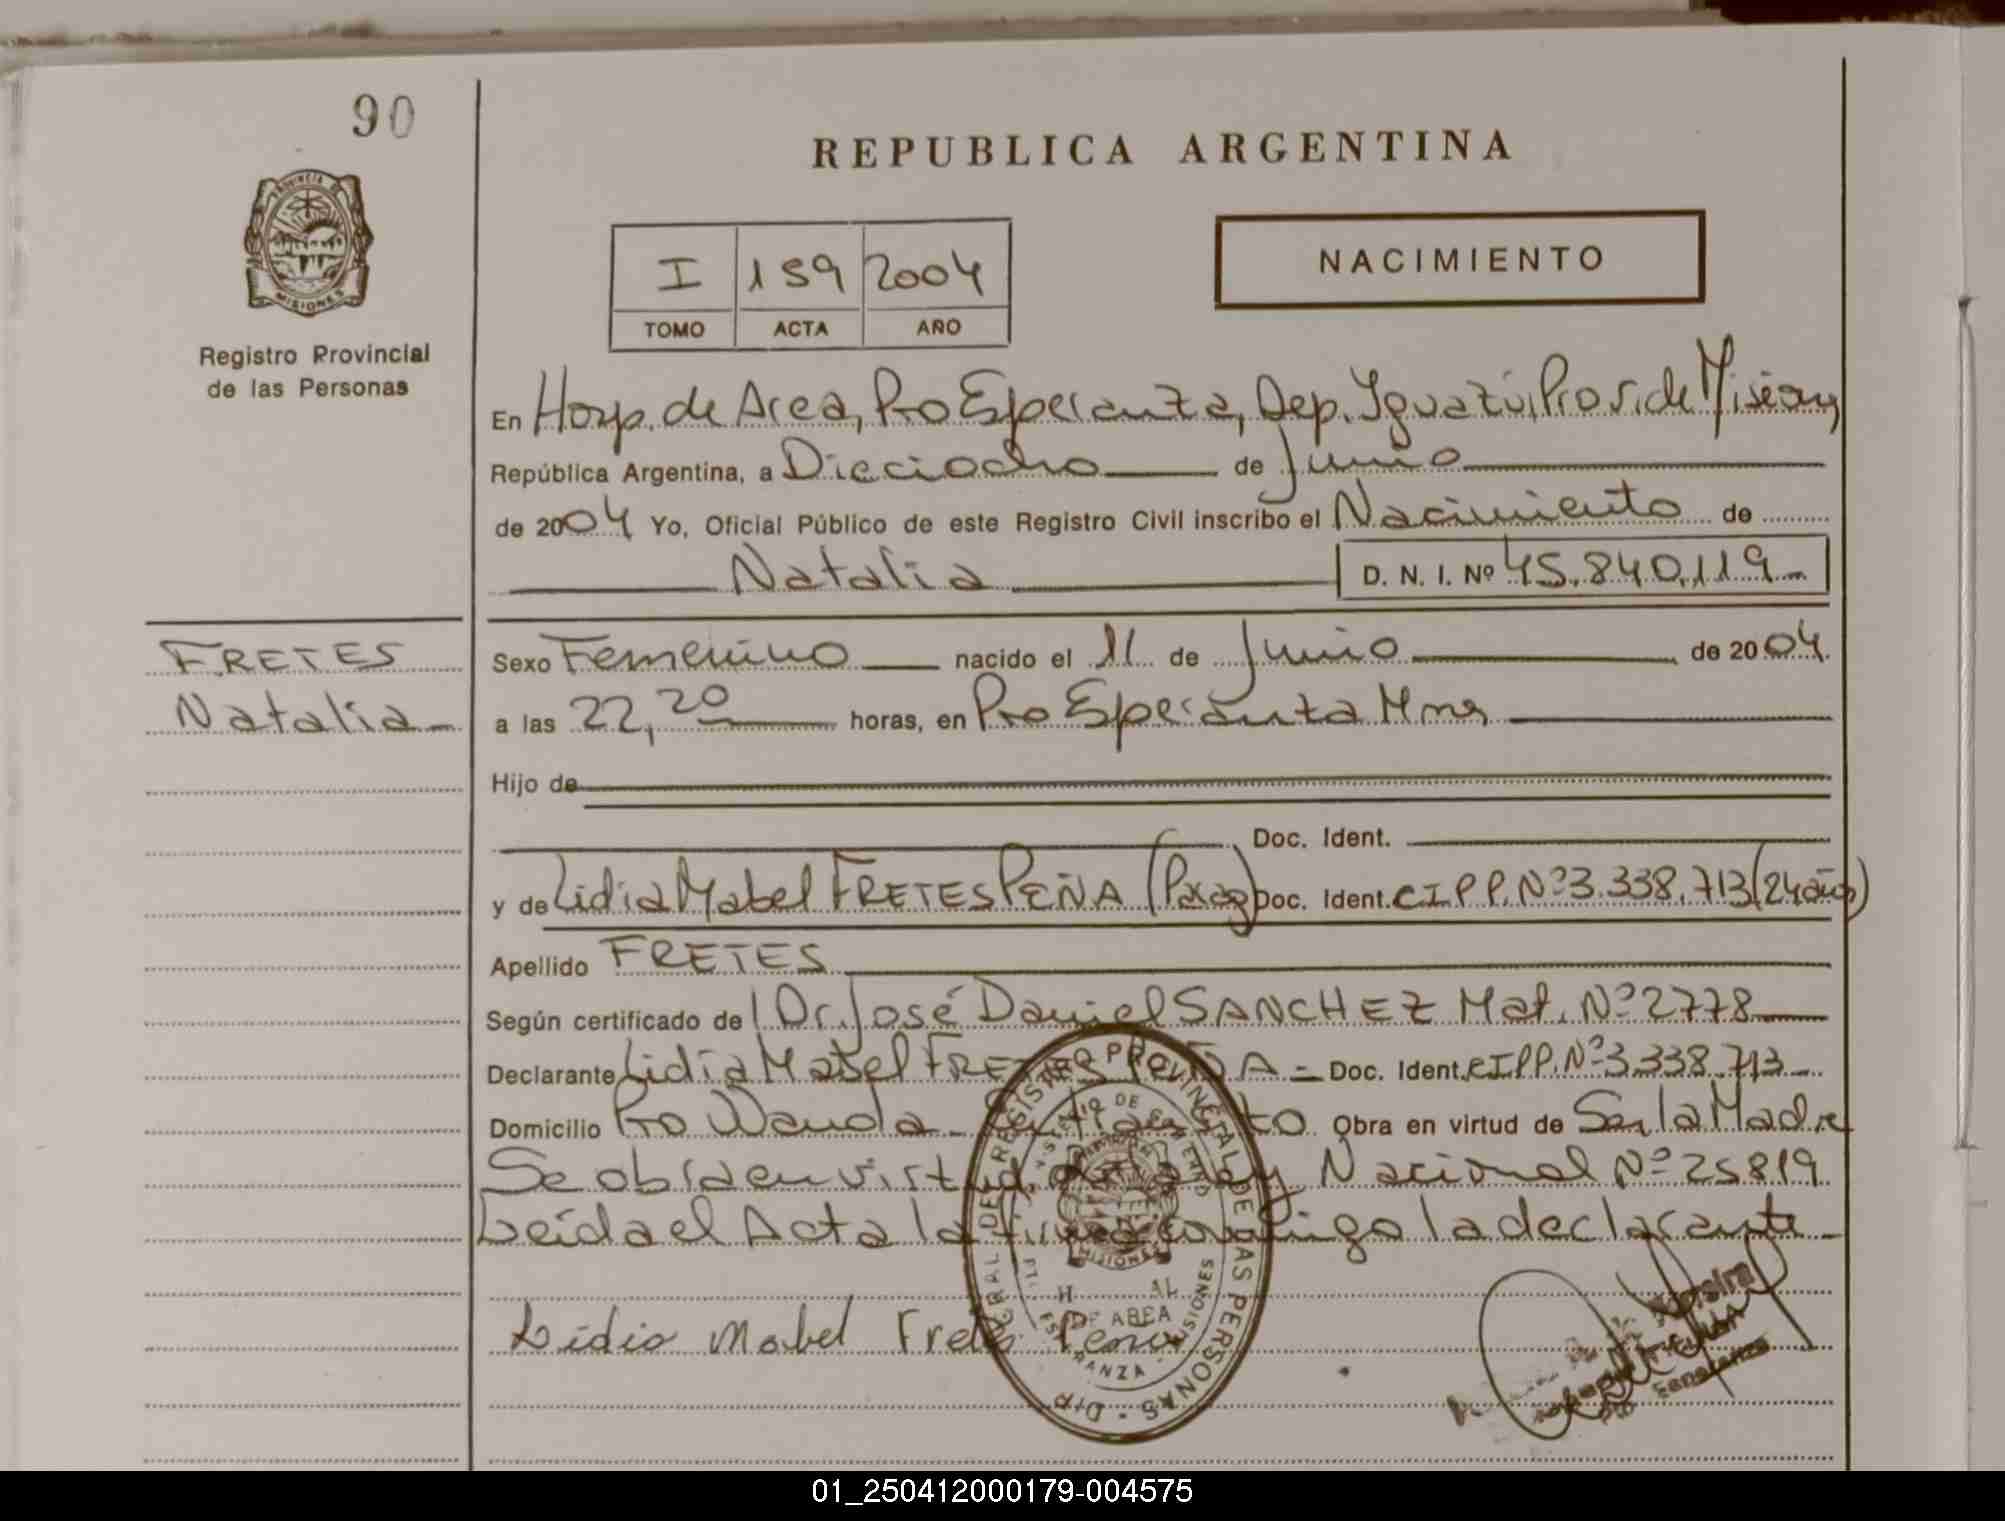 90
REPUBLICA ARGENTINA
PROVINCIA DE
MISIONES
Registro Provincial
de las Personas
I 159 2004
TOMO ACTA AÑO
NACIMIENTO
En Hosp. de Area, Pto Esperanza, Dep. Iguazú, Prov. de Misiones
República Argentina, a Dieciocho de Junio
de 2004 Yo, Oficial Público de este Registro Civil inscribo el Nacimiento de
Natalia D. N. I. Nº 45.840.119
FRETES
Natalia
Sexo Femenino nacido el 11 de Junio de 2004
a las 22,20 horas, en Pto Esperanza Mnes
Hijo de
Doc. Ident.
y de Lidia Mabel FRETES PEÑA (Parag) Doc. Ident. CIPP. Nº 3.338.713 (24 años)
Apellido FRETES
Según certificado de Dr. José Daniel SANCHEZ Mat. Nº 2778
Declarante Lidia Mabel FRETES PEÑA Doc. Ident. CIPP. Nº 3.338.713
Domicilio Pto Wanda Obra en virtud de Ser la Madre
Se obra en virtud de la Ley Nacional Nº 25819
Leída el Acta la firma conmigo la declarante
Lidia Mabel Fretes Peña
REGISTRO PROVINCIAL DE LAS PERSONAS
MISIONES
DE AREA
01_250412000179-004575